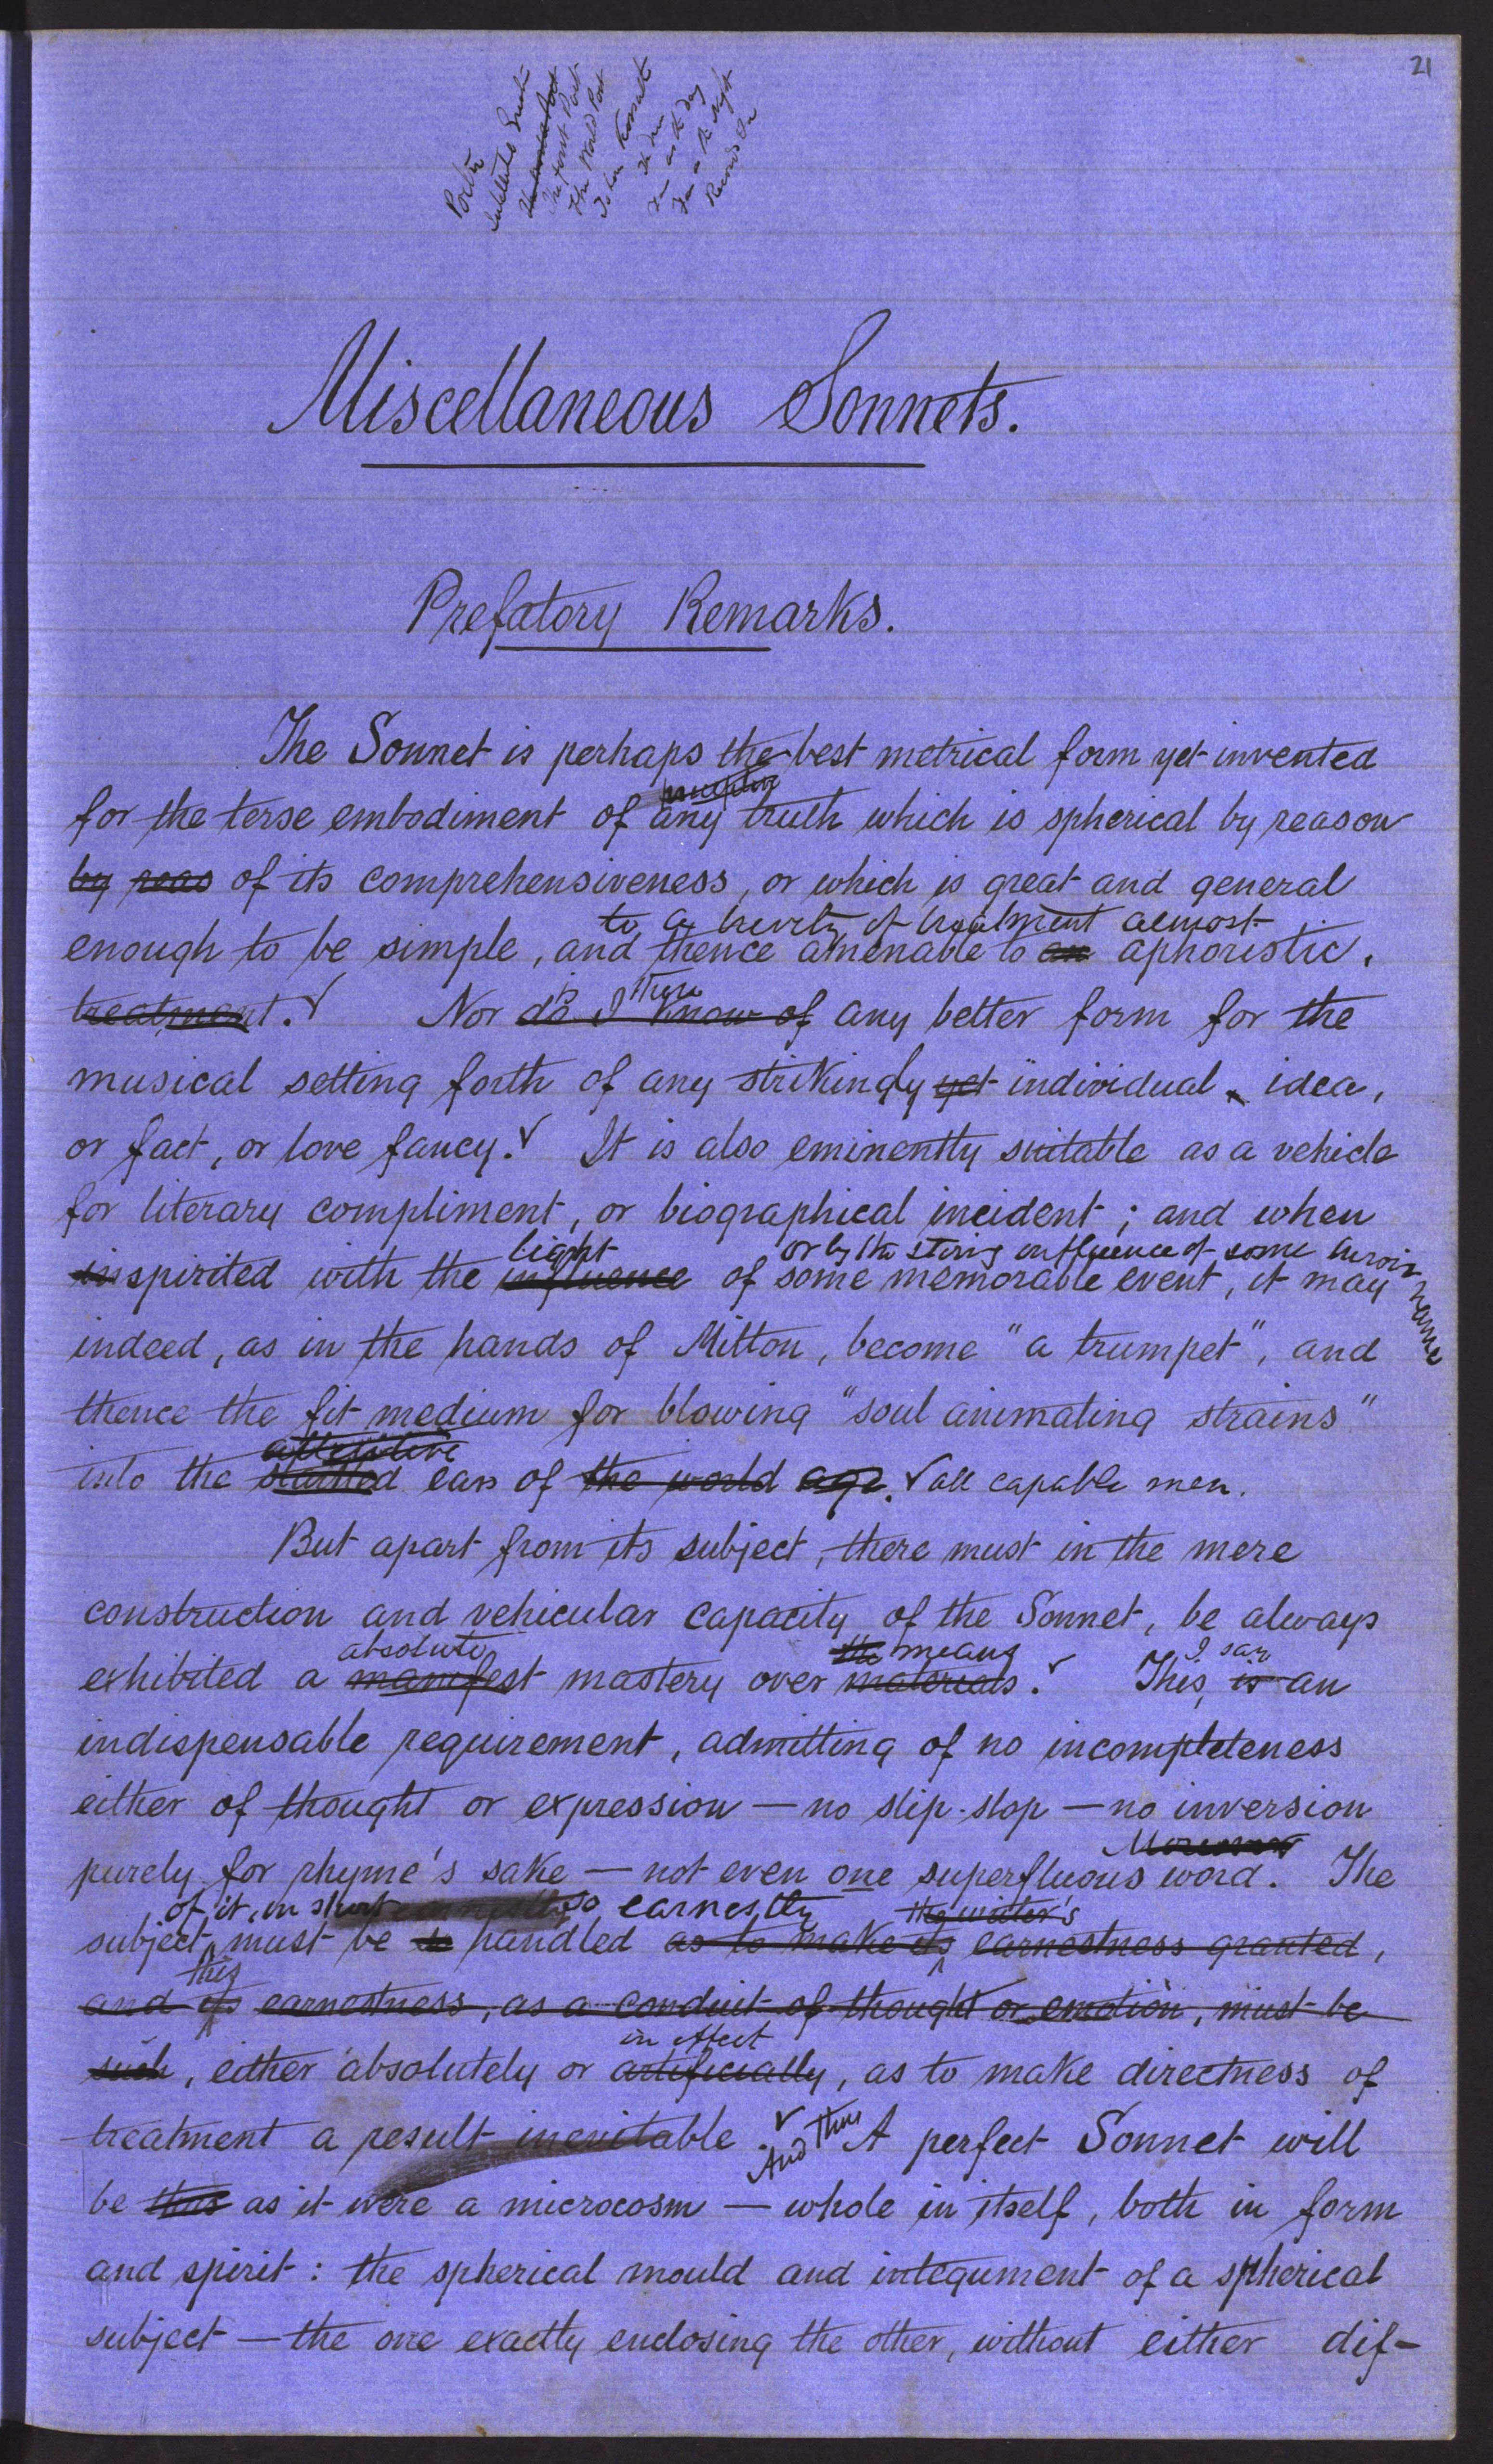 21
Miscellaneous Sonnets.
Prefatory Remarks.
The Sonnet is perhaps the best metrical form yet invented
for the terse embodiment of any truth which is spherical by reason
by reas of its comprehensiveness, or which is great and general
to a brevity of treatment almost
enough to be simple, and thence amenable to an aphoristic.
treatment. Nor do I know of any better form for the
is there
musical setting forth of any strikingly yet individual idea,
or fact, or love fancy. It is also eminently suitable as a vehicle
for literary compliment, or biographical incident; and when
light or by the stirring influence of some heroic name
inspirited with the influence of some memorable event, it may
indeed, as in the hands of Milton, become "a trumpet", and
thence the fit medium for blowing "soul animating strains"
attentive
into the startled ears of the world age. all capable men.
But apart from its subject, there must in the mere
construction and vehicular capacity of the Sonnet, be always
absolute the means I say
exhibited a manifest mastery over materials. This, is an
indispensable requirement, admitting of no incompleteness
either of thought or expression — no slip-slop — no inversion
Moreover
purely for rhyme's sake — not even one superfluous word. The
of it, in short so earnestly the writer's
subject must be so handled as to make its earnestness granted,
this
and its earnestness, as a conduit of thought or emotion, must be
in effect
such, either absolutely or artificially, as to make directness of
treatment a result inevitable. And thus A perfect Sonnet will
be thus as it were a microcosm — whole in itself, both in form
and spirit: the spherical mould and integument of a spherical
subject — the one exactly enclosing the other, without either dif-